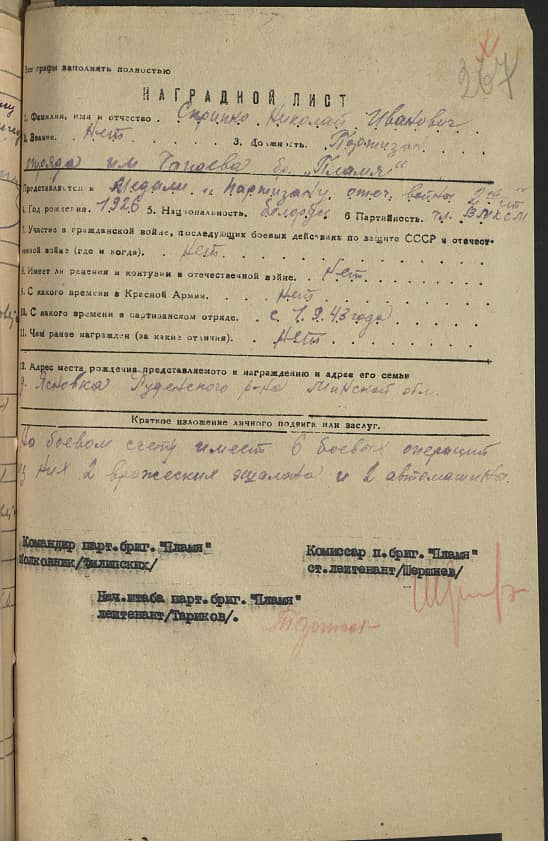 267
Все графы заполнять полностью
НАГРАДНОЙ ЛИСТ
1. Фамилия, имя и отчество . Скрипко Николай Иванович
2. Звание. Нет 3. Должность. Партизан
отряда им Чапаева бр. "Пламя"
Представляется к Медали "Партизану отеч. войны 2 ой ст
4. Год рождения. 1926 5. Национальность. Белорус 6 Партийность. чл. ВЛКСМ
7. Участие в гражданской войне, последующих боевых действиях по защите СССР и отечест-
венной войне (где и когда). Нет
8. Имеет ли ранения и контузии в отечественной войне. Нет
9. С какого времени в Красной Армии. Нет
10. С какого времени в партизанском отряде. с 1.9.43 года
11. Чем ранее награжден (за какие отличия). Нет
12. Адрес места рождения представляемого к награждению и адрес его семьи
д. Ясновка Руденского р-на Минской обл.
Краткое изложение личного подвига или заслуг.
На боевом счету имеет 6 боевых операций
из них 2 вражеских эшалона и 2 автомашины.
Командир парт.бриг. "Пламя"
Полковник/Филипских/
Комиссар п.бриг. "Пламя"
ст.лейтенант/Шершнев/
Нач.штаба парт.бриг. "Пламя"
лейтенант/Тариков/.